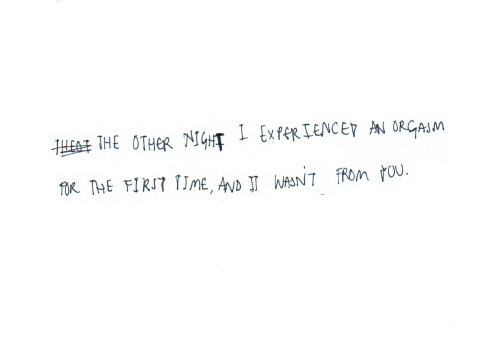 THE OTHER NIGHT I EXPERIENCED AN ORGASM
FOR THE FIRST TIME, AND IT WASN'T FROM YOU.